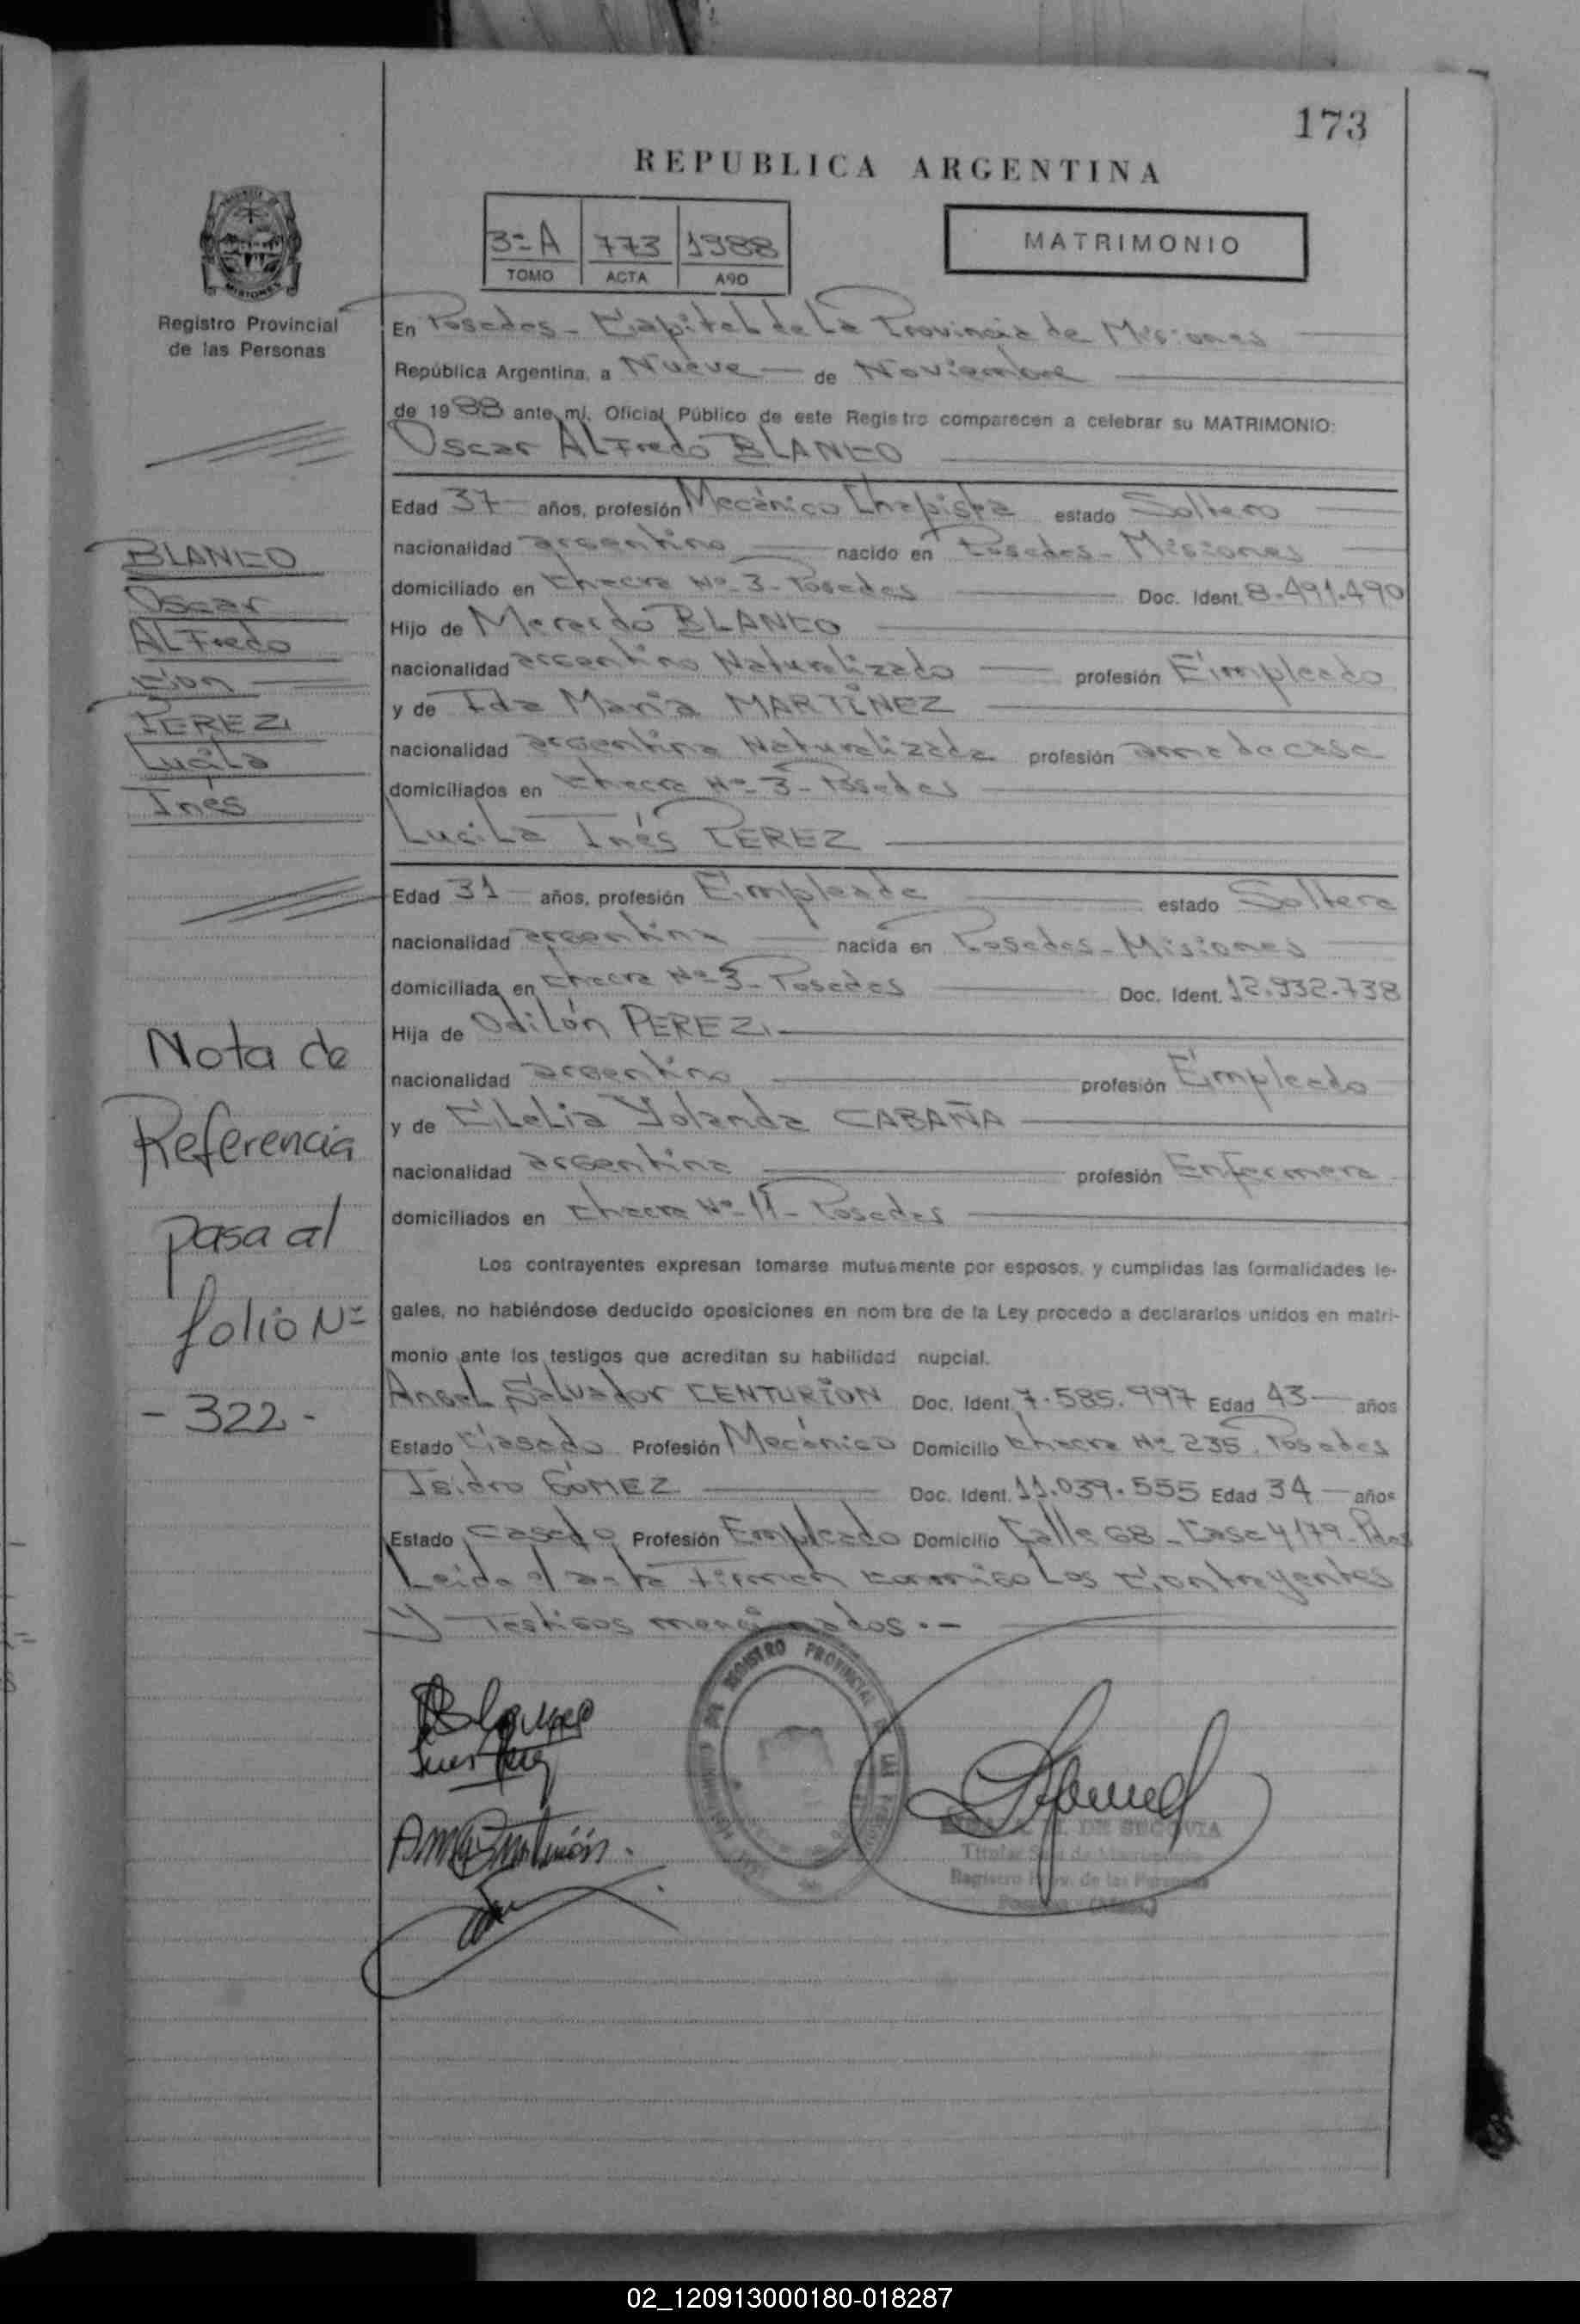 173
REPUBLICA ARGENTINA
3=A 773 1988
TOMO ACTA AÑO
MATRIMONIO
Registro Provincial
de las Personas
En Posadas - Capital de La Provincia de Misiones
República Argentina, a Nueve de Noviembre
de 1988 ante mí, Oficial Público de este Registro comparecen a celebrar su MATRIMONIO:
Oscar ALFredo BLANCO
Edad 37 años, profesión Mecánico Chapista estado Soltero
nacionalidad argentino nacido en Posadas - Misiones
domiciliado en Chacra Nº 3 - Posadas Doc. Ident. 8.491.490
Hijo de BLANCO
nacionalidad argentino Naturalizado profesión Empleado
y de Ida María MARTÍNEZ
nacionalidad argentina Naturalizada profesión ama de casa
domiciliados en Chacra Nº 3 - Posadas
Lucila Inés PEREZ
Edad 31 años, profesión Empleada estado Soltera
nacionalidad argentina nacida en Posadas - Misiones
domiciliada en Chacra Nº 3 - Posadas Doc. Ident. 12.932.738
Hija de Odilón PEREZ
nacionalidad argentino profesión Empleado
y de Yolanda CABAÑA
nacionalidad argentina profesión Enfermera
domiciliados en Chacra Nº 11 - Posadas
Los contrayentes expresan tomarse mutuamente por esposos, y cumplidas las formalidades le-
gales, no habiéndose deducido oposiciones en nombre de la Ley procedo a declararlos unidos en matri-
monio ante los testigos que acreditan su habilidad nupcial.
Angel Salvador CENTURIÓN Doc. Ident. 7.585.997 Edad 43 años
Estado Casado Profesión Mecánico Domicilio Chacra Nº 235. Posadas
Isidro GÓMEZ Doc. Ident. 11.039.555 Edad 34 años
Estado Casado Profesión Empleado Domicilio Calle 68 - Casa 4179 - Pdas
Leída el acta Firman conmigo Los Contrayentes
Y Testigos mencionados.-
BLANCO
Oscar
ALFredo
con
PEREZ
Lucila
Inés
Nota de
Referencia
pasa al
folio Nº
- 322 -
REGISTRO PROVINCIAL DE LAS
DE SEGOVIA
Registro Prov. de las Personas
02_120913000180-018287